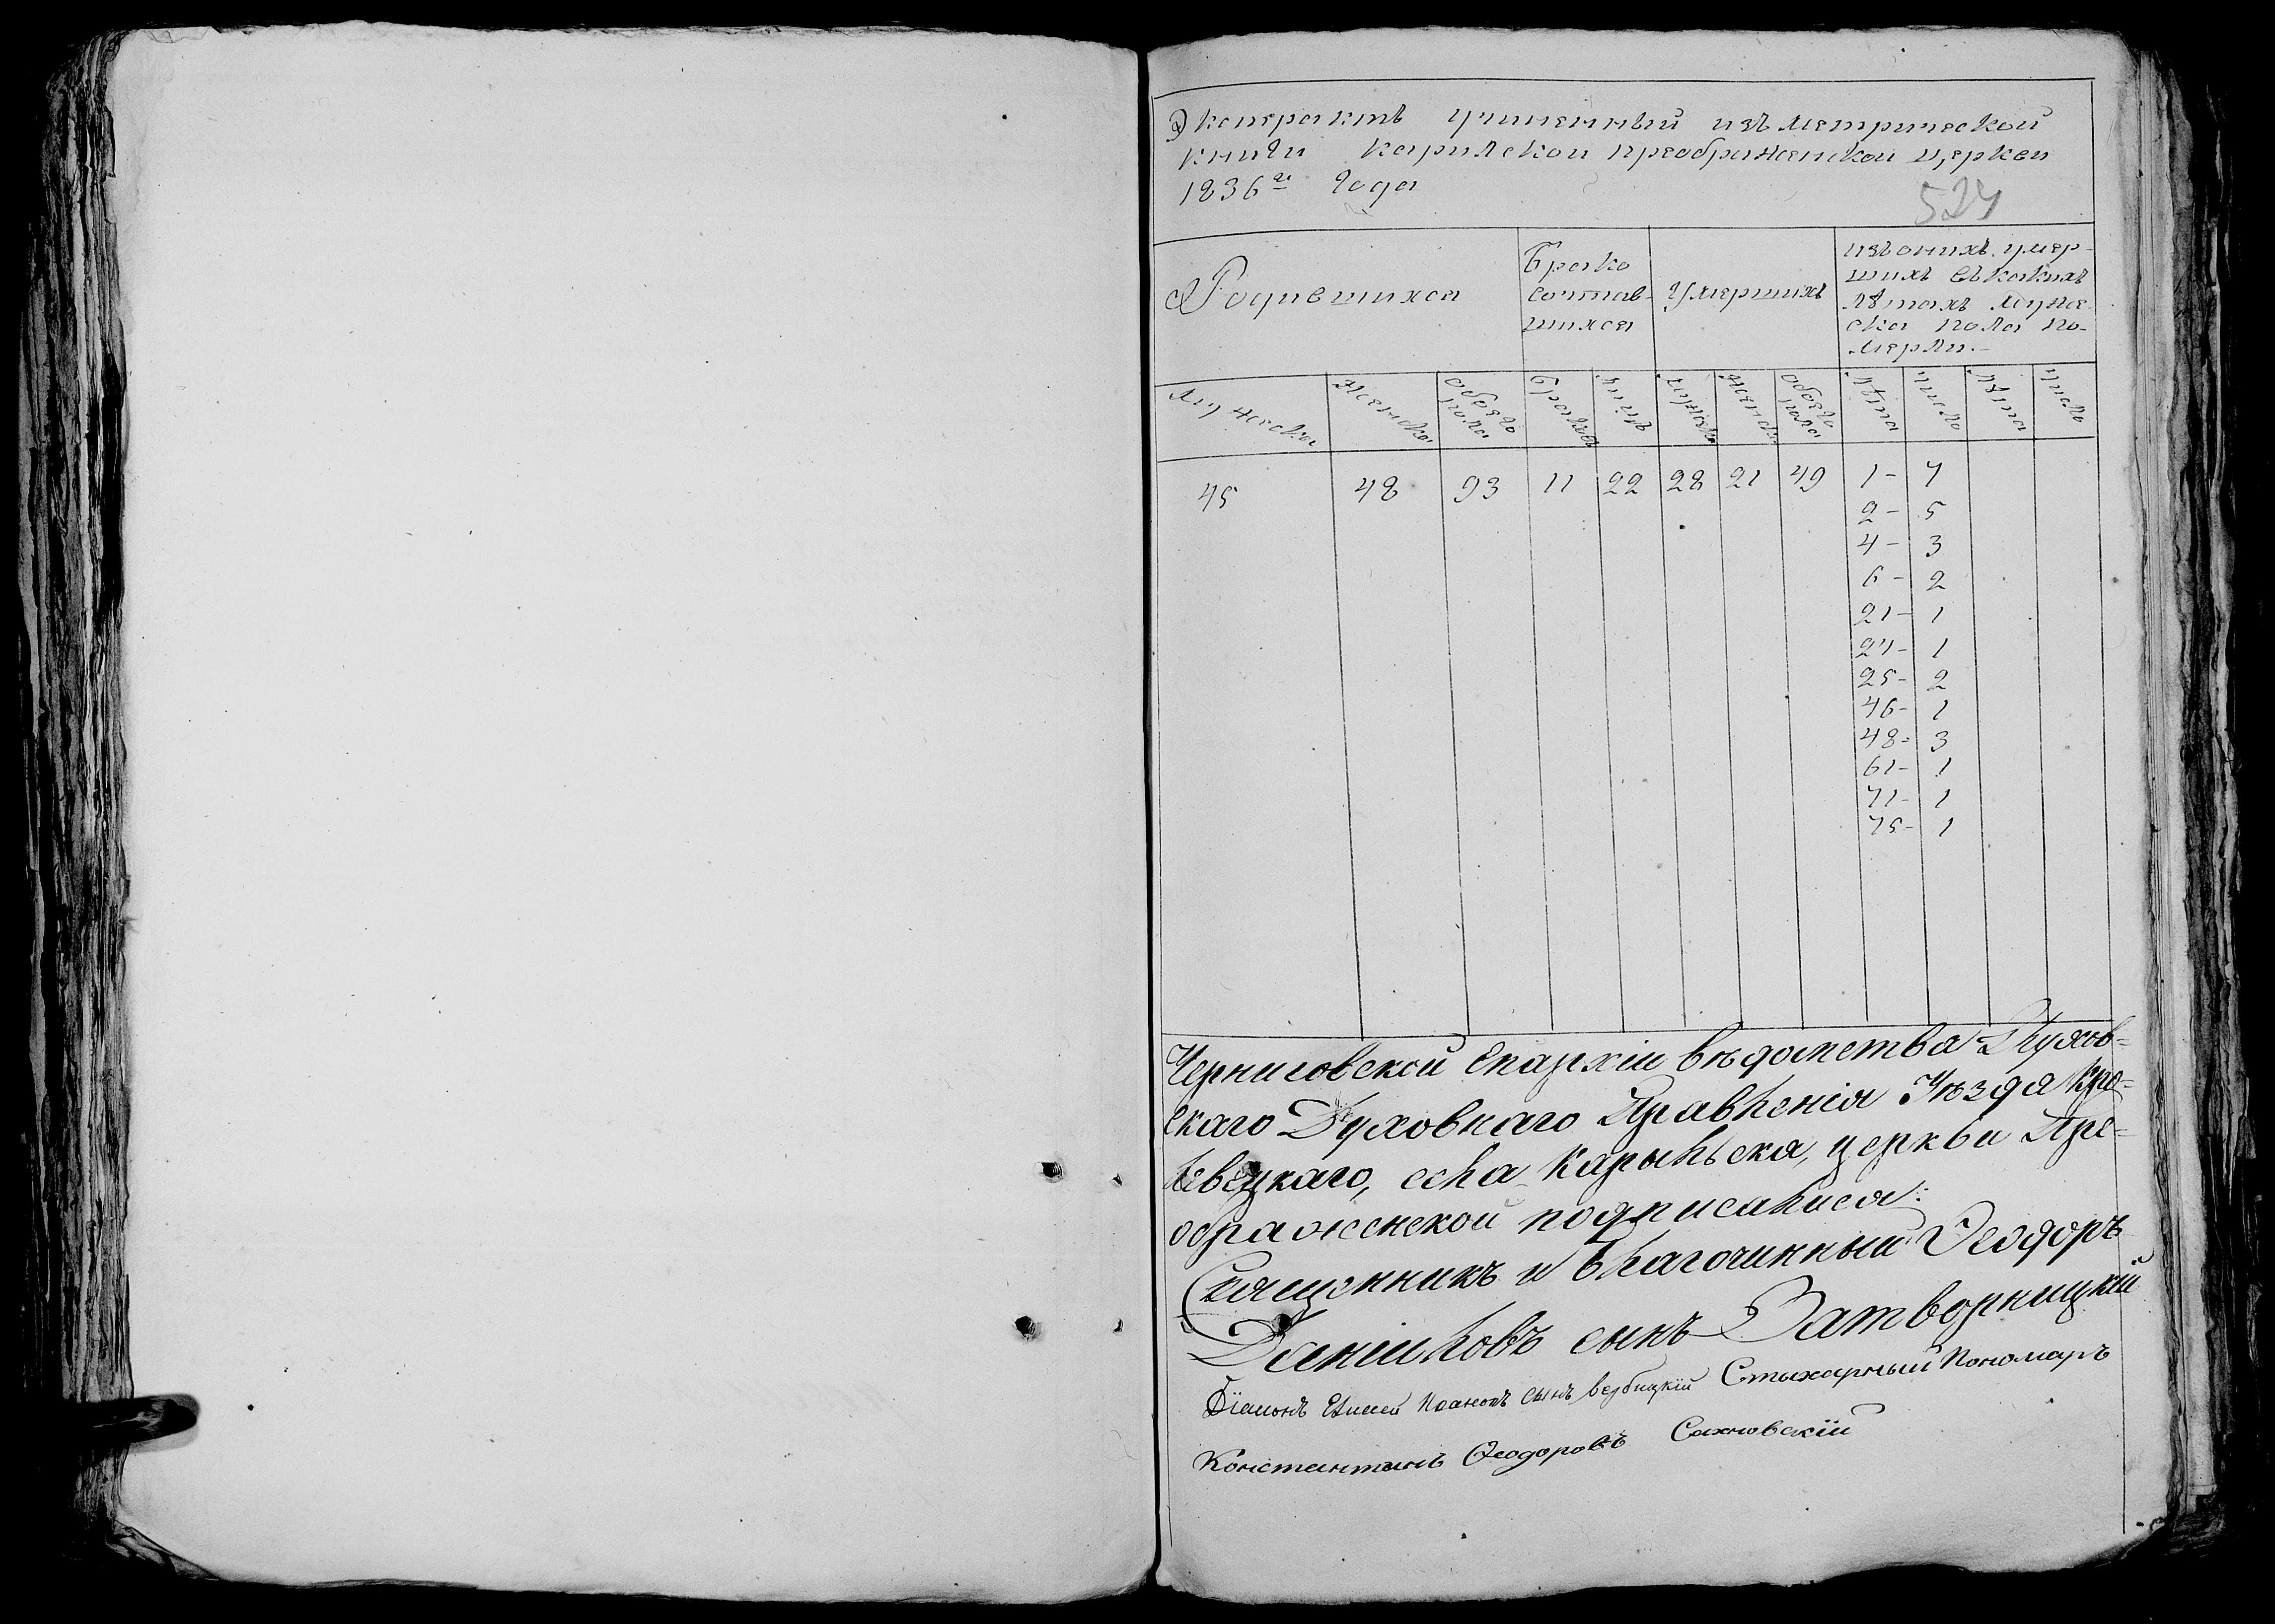 Экстрактъ учиненный изъ метрической
книги Карилской преображенской церкви
1836го года
524
Родившихся
Брако
сочтав-
шихся
Умершихъ
изъ онихъ умер-
шихъ въ какихъ
лѣтахъ муже-
ска пола по-
мерли.
Мужеска Женска обоего пола Браковъ лицъ мужска женска обоего пола лѣта число лѣта число
45 48 93 11 22 28 21 49 1- 7
2- 5
4- 3
6- 2
21- 1
27- 1
25- 2
46- 1
48- 3
61- 1
71- 1
75- 1
Черниговской Епархіи вѣдомства Глухов-
скаго Духовнаго Правленія Уѣзда Кро-
левецкаго, села Карыльска, церкви Пре-
ображенской подписалися:
Священникъ и Благочинный Ѳеодоръ
Даніиловъ сынъ Затворницкій
Діаконъ Елисей Иоановъ сынъ вербицкій Стихарный Пономаръ
Константинъ Ѳеодоровъ Сахновскій